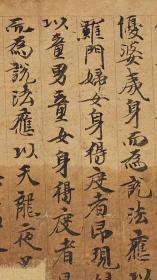 優婆夷身而為說法應以
羅門婦女身得度者即現婦
以童男童女身得度者即
而為說法應以天龍夜叉